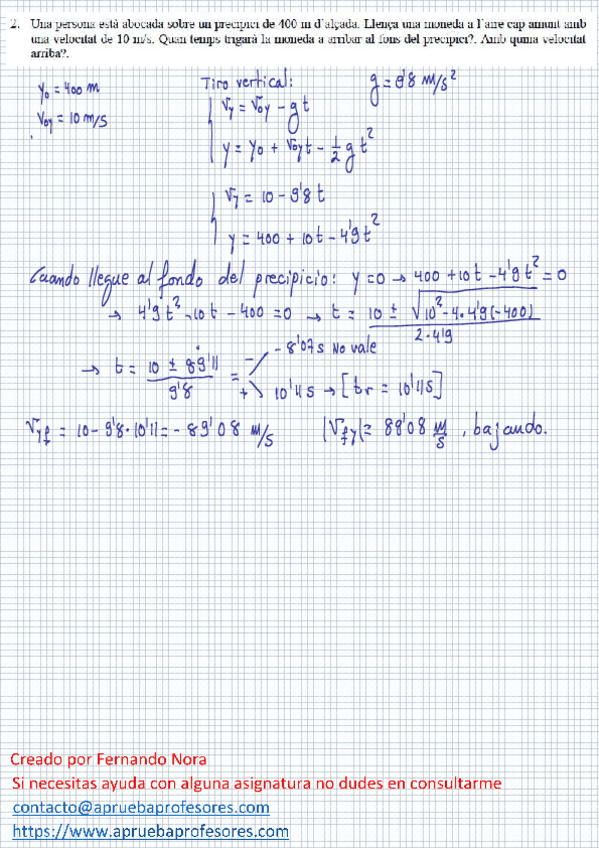 2. Una persona està abocada sobre un precipici de 400 m d'alçada. Llença una moneda a l'aire cap amunt amb
una velocitat de 10 m/s. Quan temps trigarà la moneda a arribar al fons del precipici?. Amb quina velocitat
arriba?.
Tiro vertical:
g = 9'8 m/s²
y₀ = 400 m
V₀y = 10 m/s
Vy = V₀y - gt
y = y₀ + V₀yt - 1/2 g t²
Vy = 10 - 9'8 t
y = 400 + 10t - 4'9t²
Cuando llegue al fondo del precipicio: y = 0 → 400 + 10t - 4'9t² = 0
→ 4'9t² - 10t - 400 = 0 → t = (10 ± √(10² - 4·4'9(-400))) / (2·4'9)
→ t = (10 ± 89'11) / 9'8 =
- -8'07 s No vale
+ 10'11 s → [tr = 10'11 s]
Vyf = 10 - 9'8·10'11 = -89'08 m/s |Vfy| = 88'08 m/s, bajando.
Creado por Fernando Nora
Si necesitas ayuda con alguna asignatura no dudes en consultarme
contacto@apruebaprofesores.com
https://www.apruebaprofesores.com